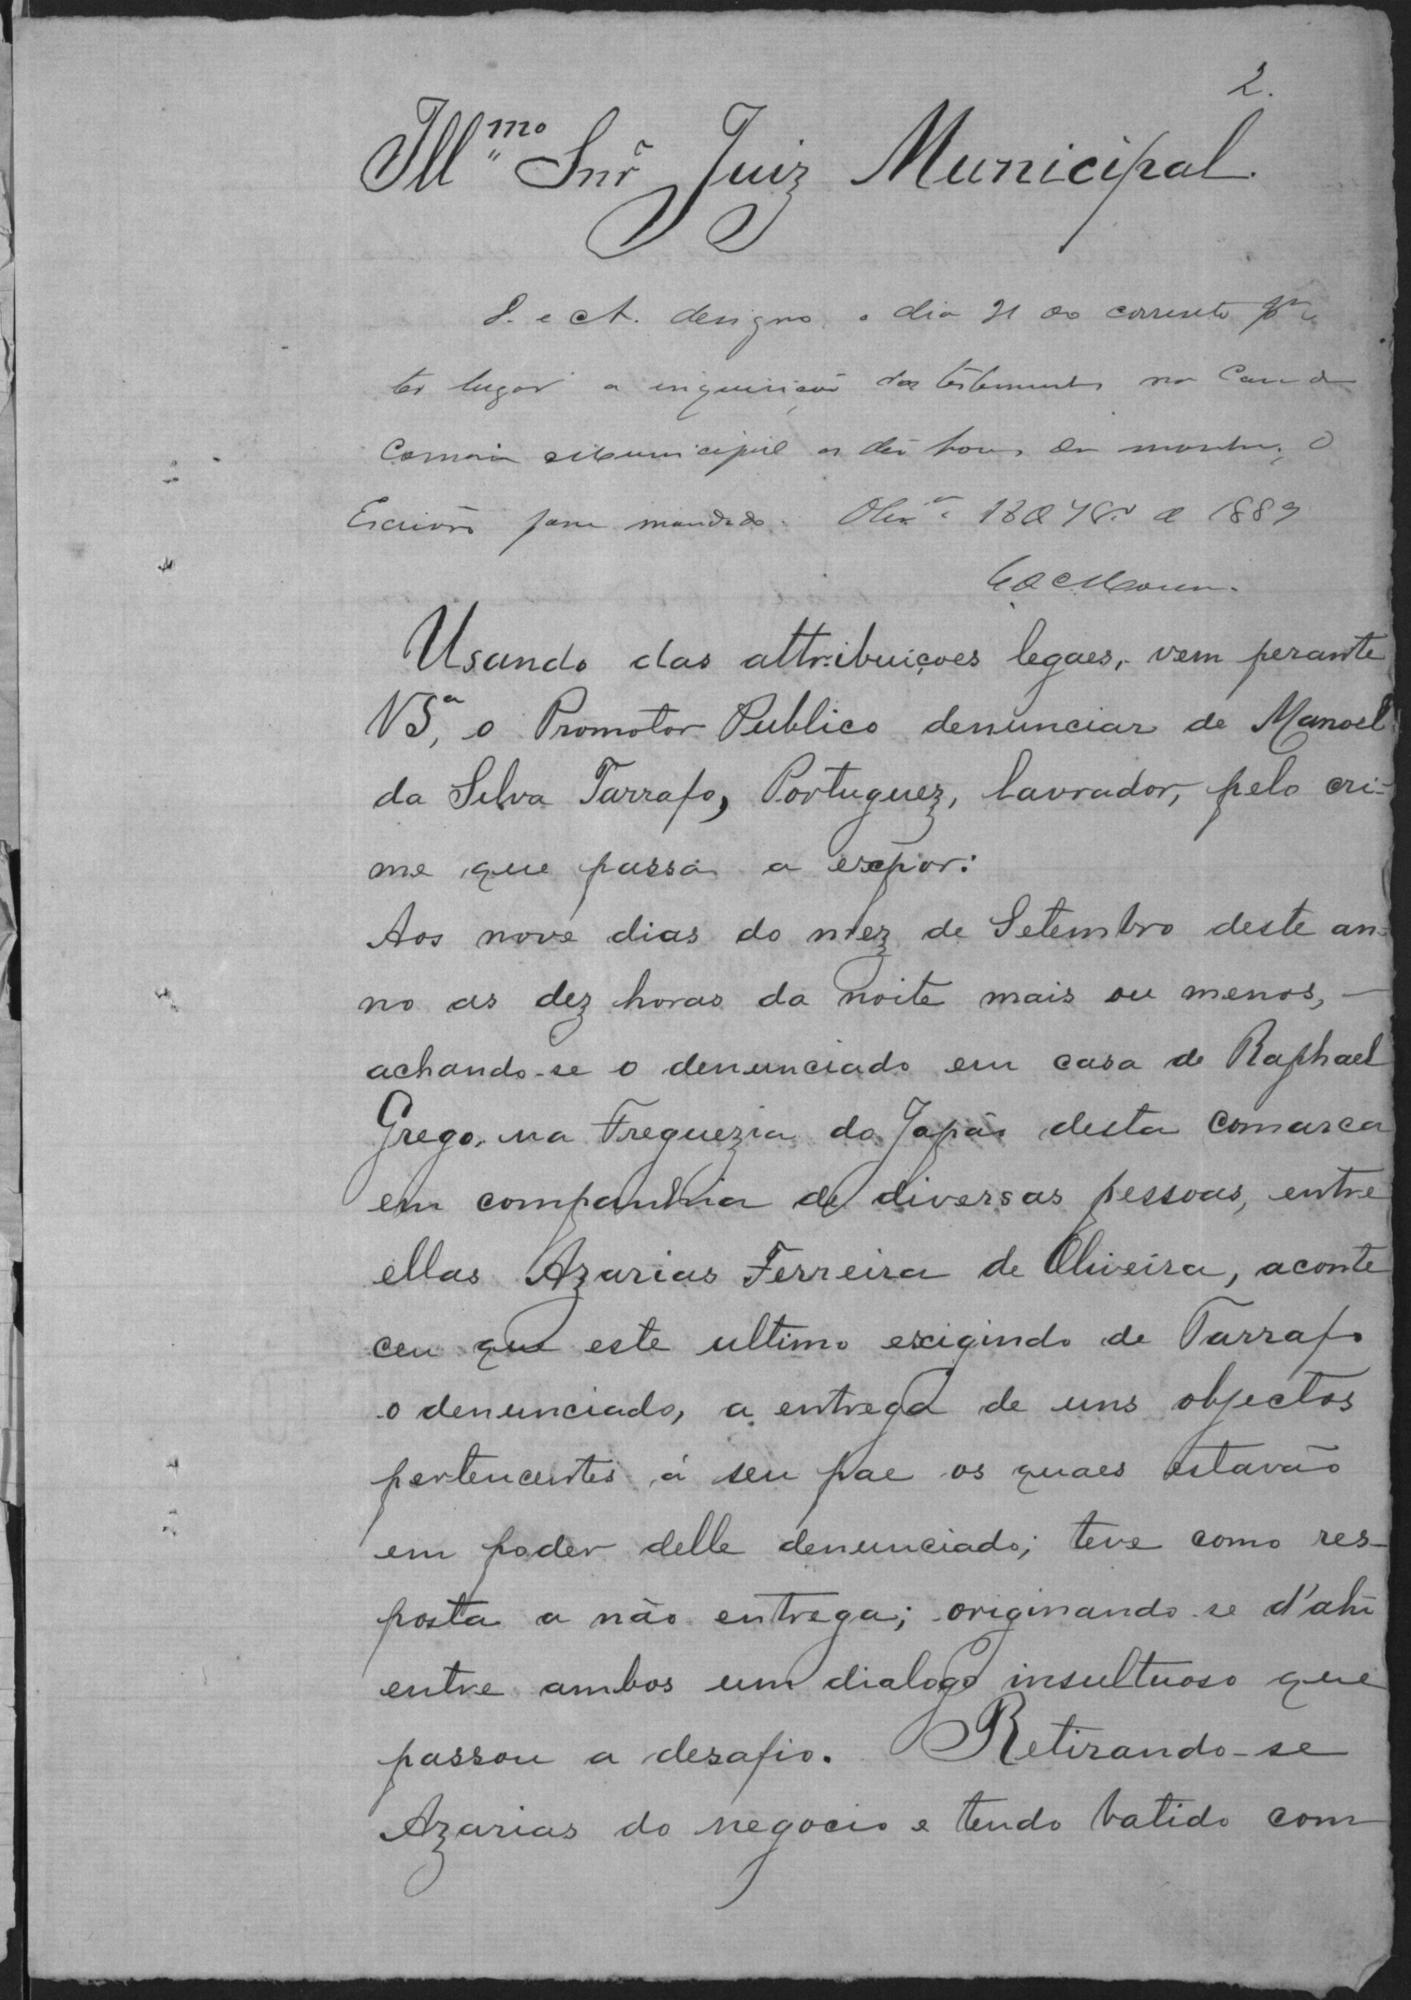 2.
Illmo Snr Juiz Municipal.
D. e A. designo o dia 21 do corrente pa
ter lugar a inquirição das testemunhas na Casa da
Camara Municipal as dez horas da manha; O
Escrivão passe mandado. 18 de 7bro de 1889
Usando das attribuiçoes legaes, vem perante
VSa, o Promotor Publico denunciar de Manoel
da Silva Tarrafo, Portuguez, lavrador, pelo cri-
me que passa a expor:
Aos nove dias do mez de Setembro deste an-
no as dez horas da noite mais ou menos,
achando-se o denunciado em casa de Raphael
Grego, na Freguezia do Japão desta comarca
em companhia de diversas pessoas, entre
ellas Azarias Ferreira de Oliveira, aconte
ceu que este ultimo exigindo de Tarrafo
o denunciado, a entrega de uns objectos
pertencentes á seu pae os quaes estavão
em poder delle denunciado; teve como res-
posta a não entrega; originando-se d'ahi
entre ambos um dialogo insultuoso que
passou a desafio. Retirando-se
Azarias do negocio e tendo batido com